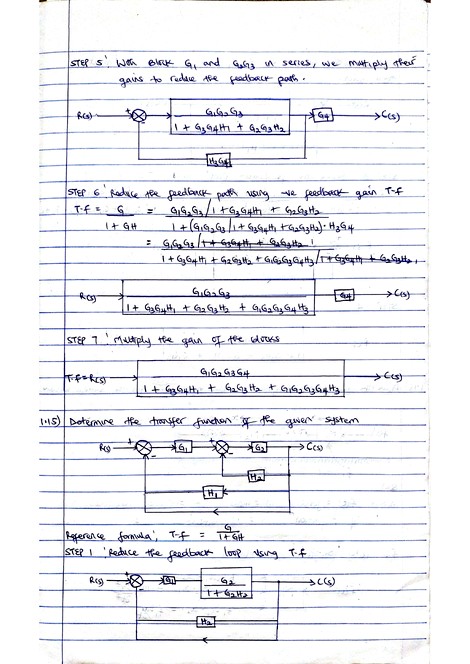 STEP 5: With Block G1 and G2G3 in series, we multiply their
gains to reduce the feedback path.
R(s) + - G1G2G3 / 1 + G3G4H1 + G2G3H2 G4 C(s)
H3G4
STEP 6: Reduce the feedback path using -ve feedback gain T-f
T-f = G / 1 + GH = G1G2G3 / 1 + G3G4H1 + G2G3H2
1 + (G1G2G3 / 1 + G3G4H1 + G2G3H2) · H3G4
= G1G2G3 / 1 + G3G4H1 + G2G3H2
1 + G3G4H1 + G2G3H2 + G1G2G3G4H3 / 1 + G3G4H1 + G2G3H2
R(s) G1G2G3 / 1 + G3G4H1 + G2G3H2 + G1G2G3G4H3 G4 C(s)
STEP 7: Multiply the gain of the blocks
T-f = R(s) G1G2G3G4 / 1 + G3G4H1 + G2G3H2 + G1G2G3G4H3 C(s)
1.15) Determine the transfer function of the given system
R(s) + - G1 + - G2 C(s)
H2
H1
Reference formula; T-f = G / 1 + GH
STEP 1: Reduce the feedback loop using T-f
R(s) + - G1 G2 / 1 + G2H2 C(s)